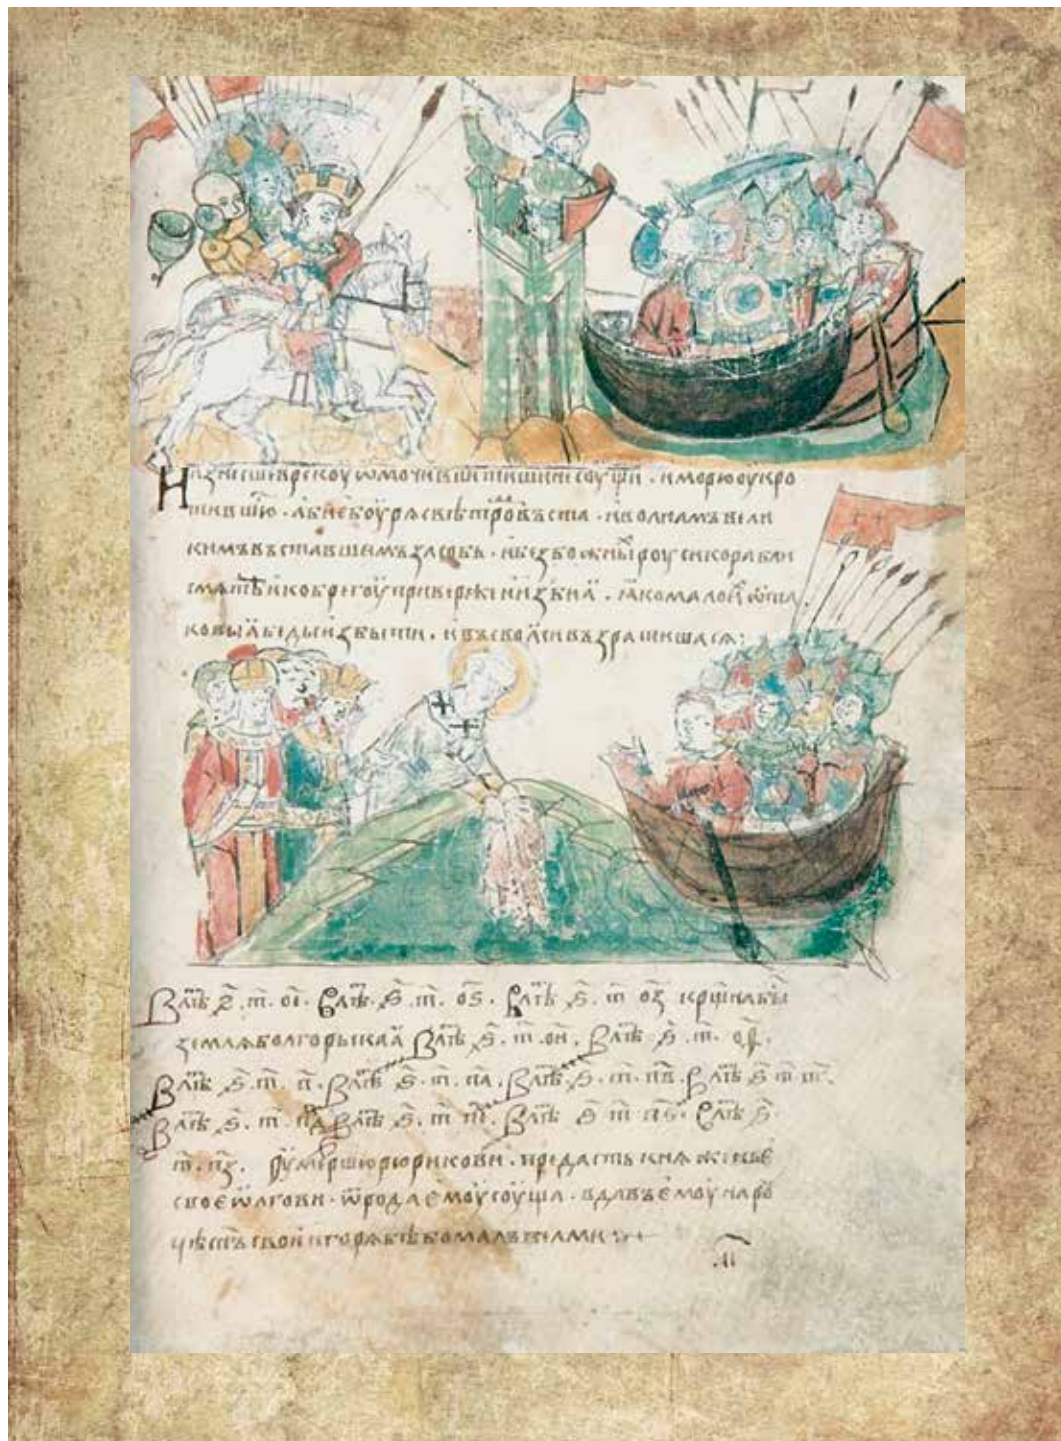 Изнесше врекоу ѡмочившѣ тишине соущи · и морю оукро
тившюⷭ · абиебоурѧ свѣтромъ въста · и волнамъ вели
кимъ въставшимъ засобь · и безбожныⷯ роуси корабли
смѧтѣ и кобрегоу привѣрже и изби ꙗ҆ · ꙗко мало иⷯ ѿ та
ковыꙗ бѣды избыти · и въсвоꙗси възратишасѧ :
В лѣⷮ ѕ҃ · т҃ · ое҃ · В лѣⷮ · ѕ҃ · т҃ · оѕ҃ · В лѣⷮ ѕ҃ · т҃ оз҃ крⷭщна бⷭы
землѧ болгорьскаꙗ В лѣⷮ ѕ҃ · т҃ · ои҃ · В лѣⷮ ѕ҃ · т҃ · оѳ҃ ·
В лѣⷮ ѕ҃ · т҃ · п҃ · В лѣⷮ ѕ҃ · т҃ · па҃ · В лѣⷮ · ѕ҃ · т҃ · пв҃ · В лѣⷮ ѕ҃ т҃ пг҃ ·
В лѣⷮ ѕ҃ · т҃ · пд҃ В лѣⷮ ѕ҃ · т҃ пе҃ · В лѣⷮ ѕ҃ т҃ пѕ҃ · В лѣⷮ ѕ҃ ·
т҃ · пз҃ · Оумершю рюрикови · предасть кнѧженье
свое ѡлгови · ѿ рода ему соуща · вдавъ емоу на роу
цѣ сн҃ъ свои игорѧ бѣ бо малъ велми :~